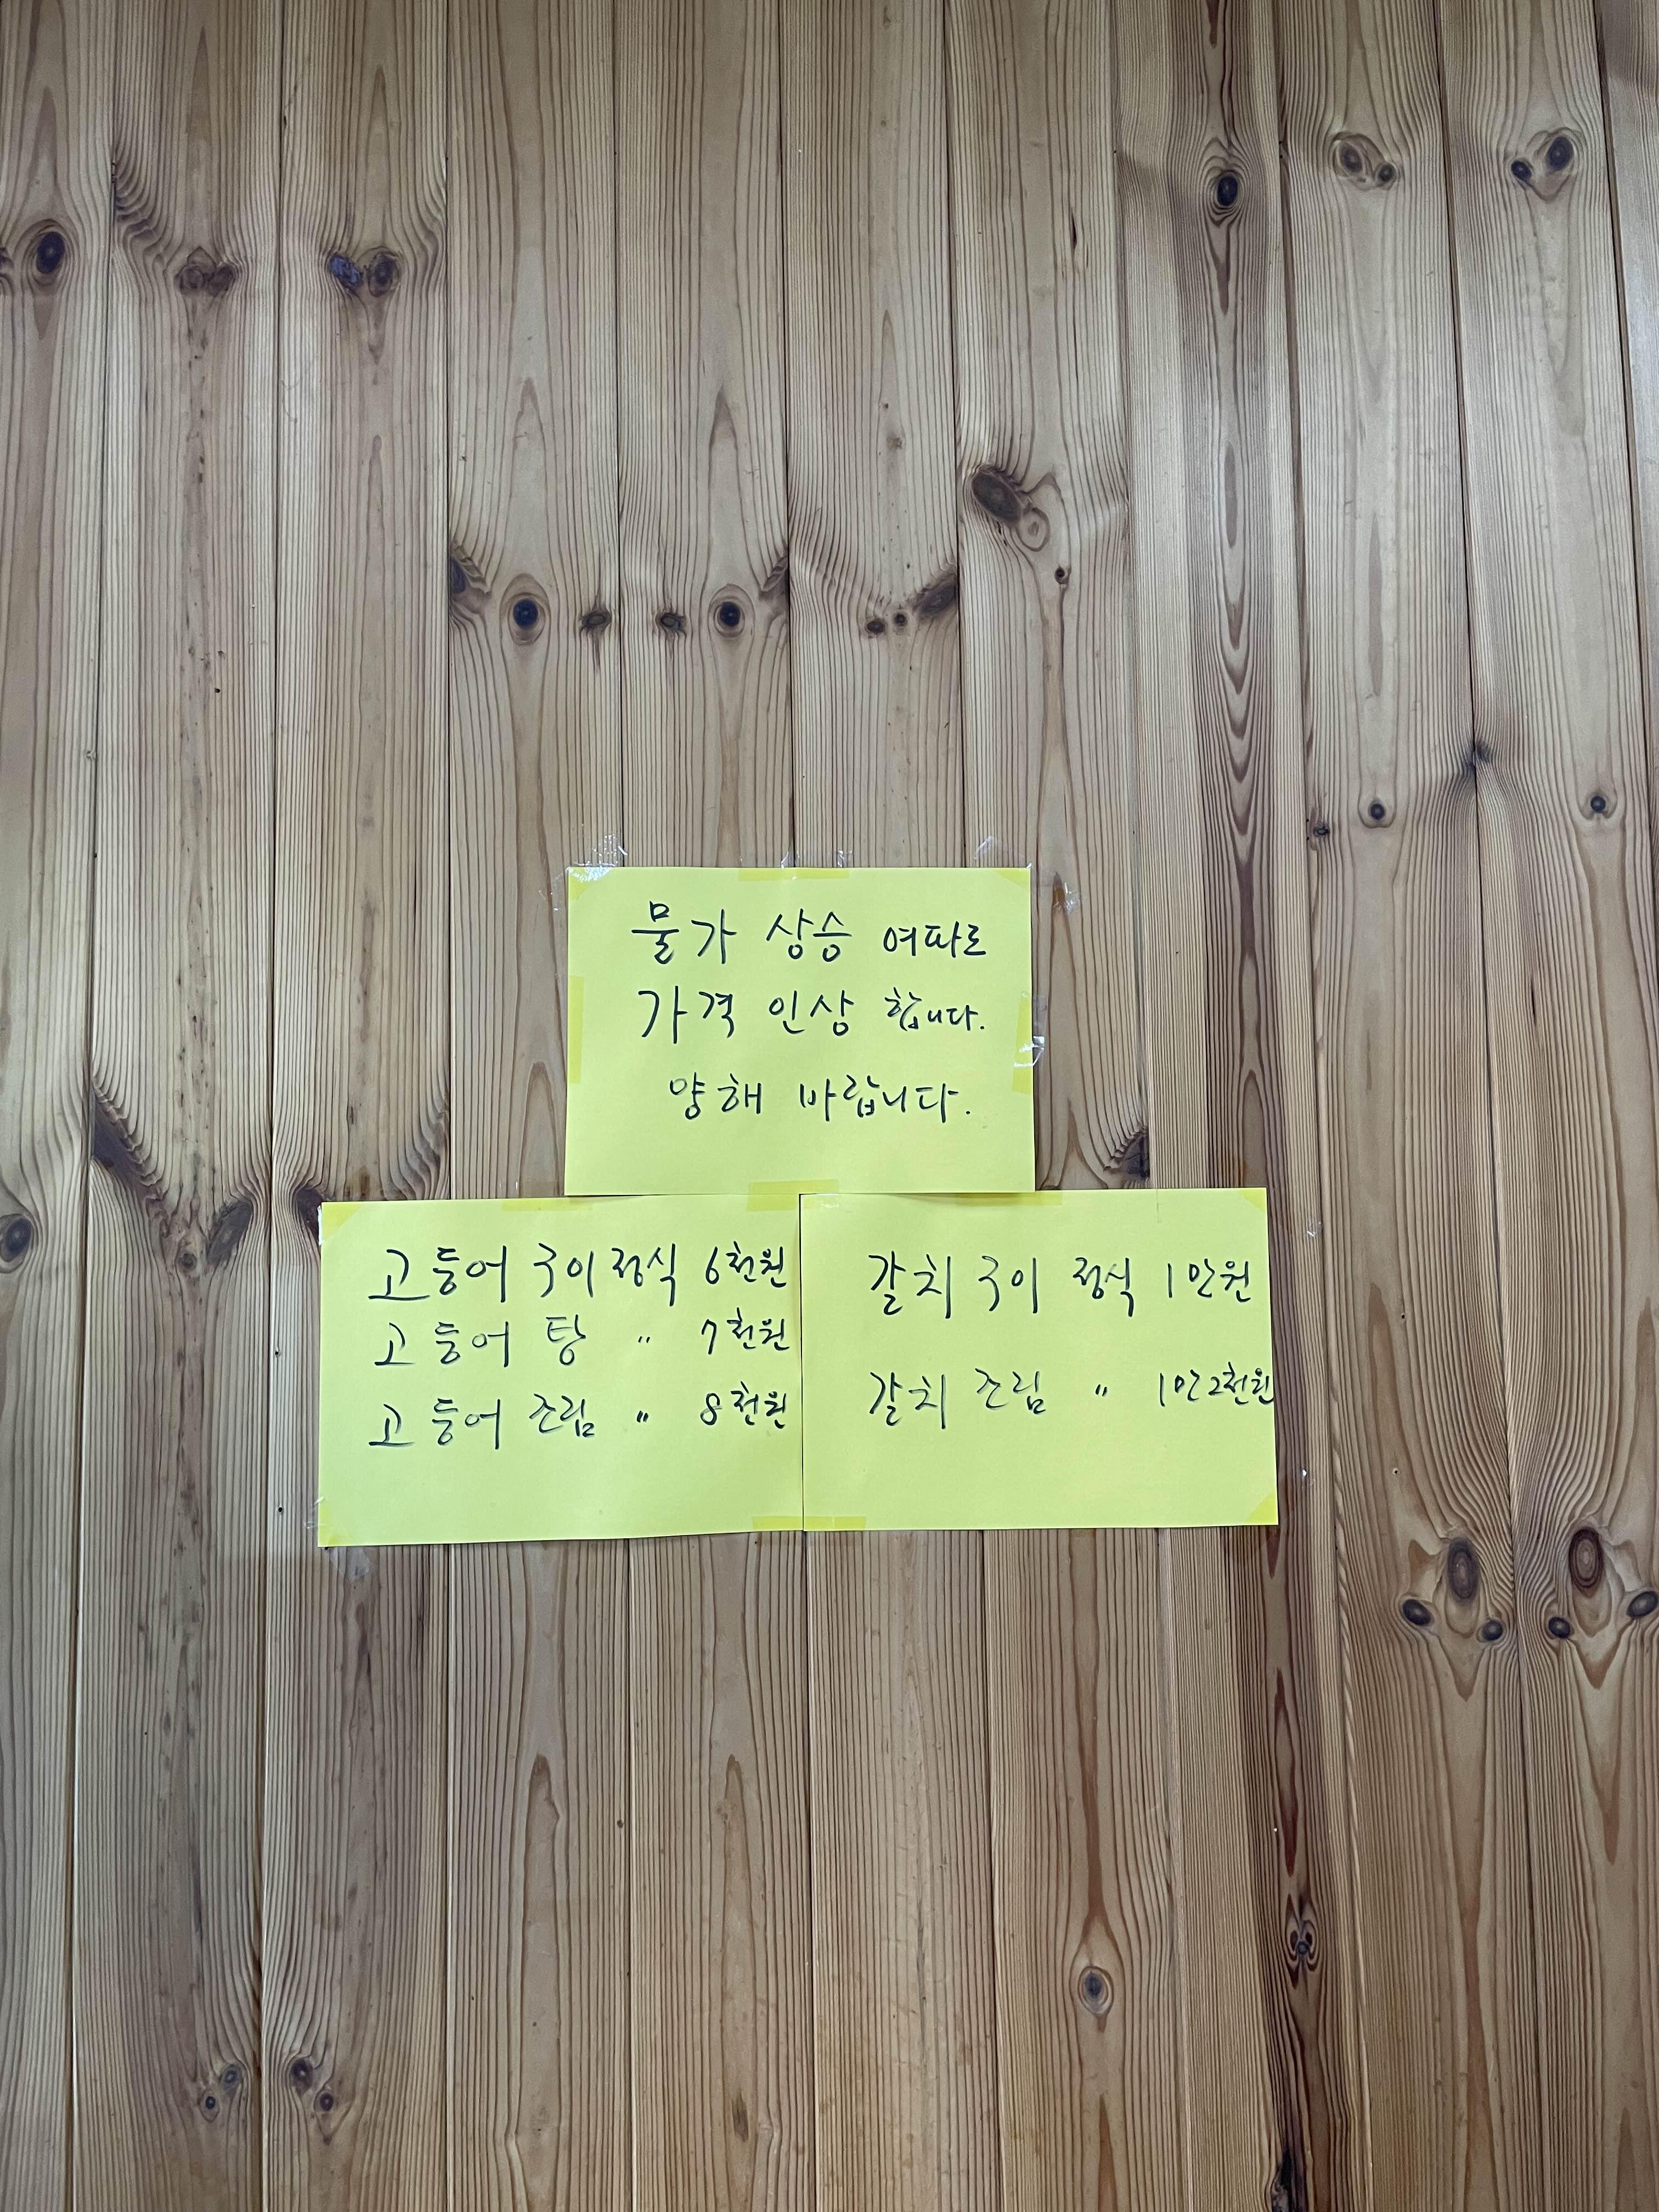 물가 상승 여파로
가격 인상 합니다.
양해 바랍니다.
고등어 구이 정식 6천원
고등어 탕 〃 7천원
고등어 조림 〃 8천원
갈치 구이 정식 1만원
갈치 조림 〃 1만2천원